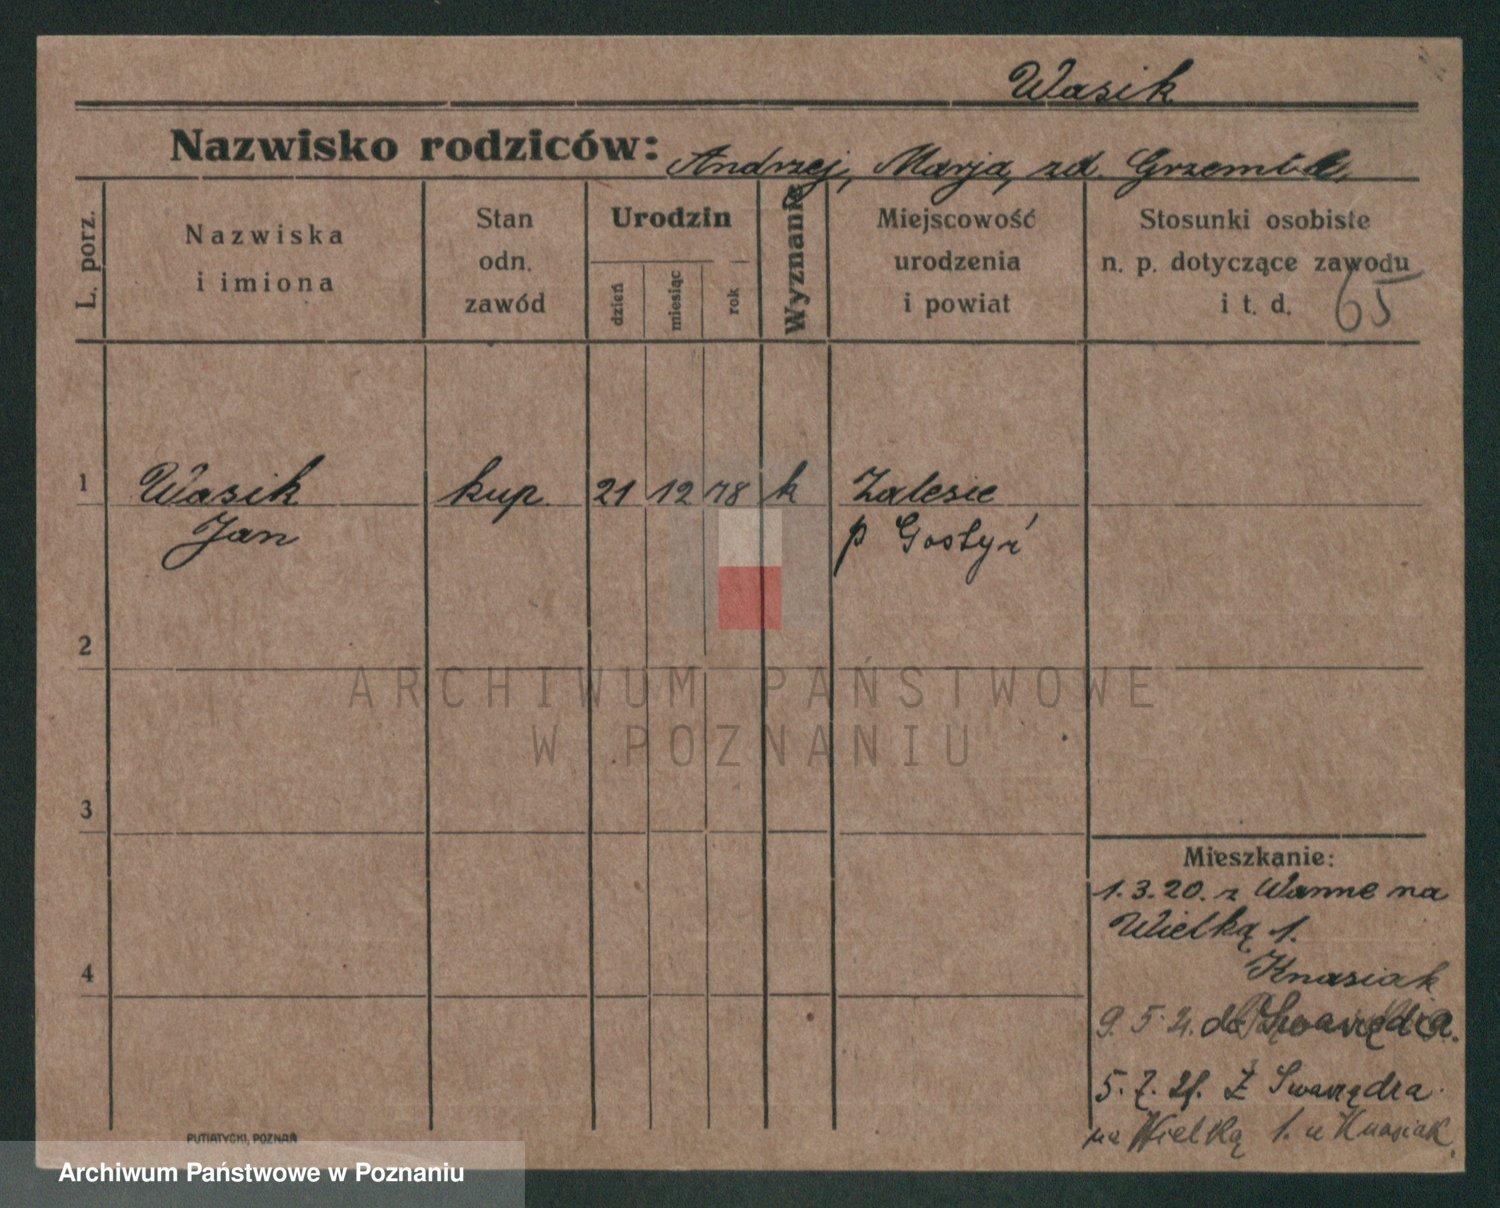 Wasik
Nazwisko rodziców: Andrzej, Marja, zd. Grzembka
L. porz.
Nazwiska
i imiona
Stan
odn.
zawód
Urodzin
dzień
miesiąc
rok
Wyznanie
Miejscowość
urodzenia
i powiat
Stosunki osobiste
n. p. dotyczące zawodu
i t. d.
65
1 Wasik kup. 21 12 78 k Zalesie
Jan p Gostyń
2
3
4
ARCHIWUM PAŃSTWOWE
W POZNANIU
Mieszkanie:
1.3.20. z Wanne na
Wielką 1.
Knasiak
9. 5. 21. do Swarzędza.
5. 7. 21. Z Swarzędza
na Wielką 1. u Knasiak.
PUTIATYCKI, POZNAŃ
Archiwum Państwowe w Poznaniu